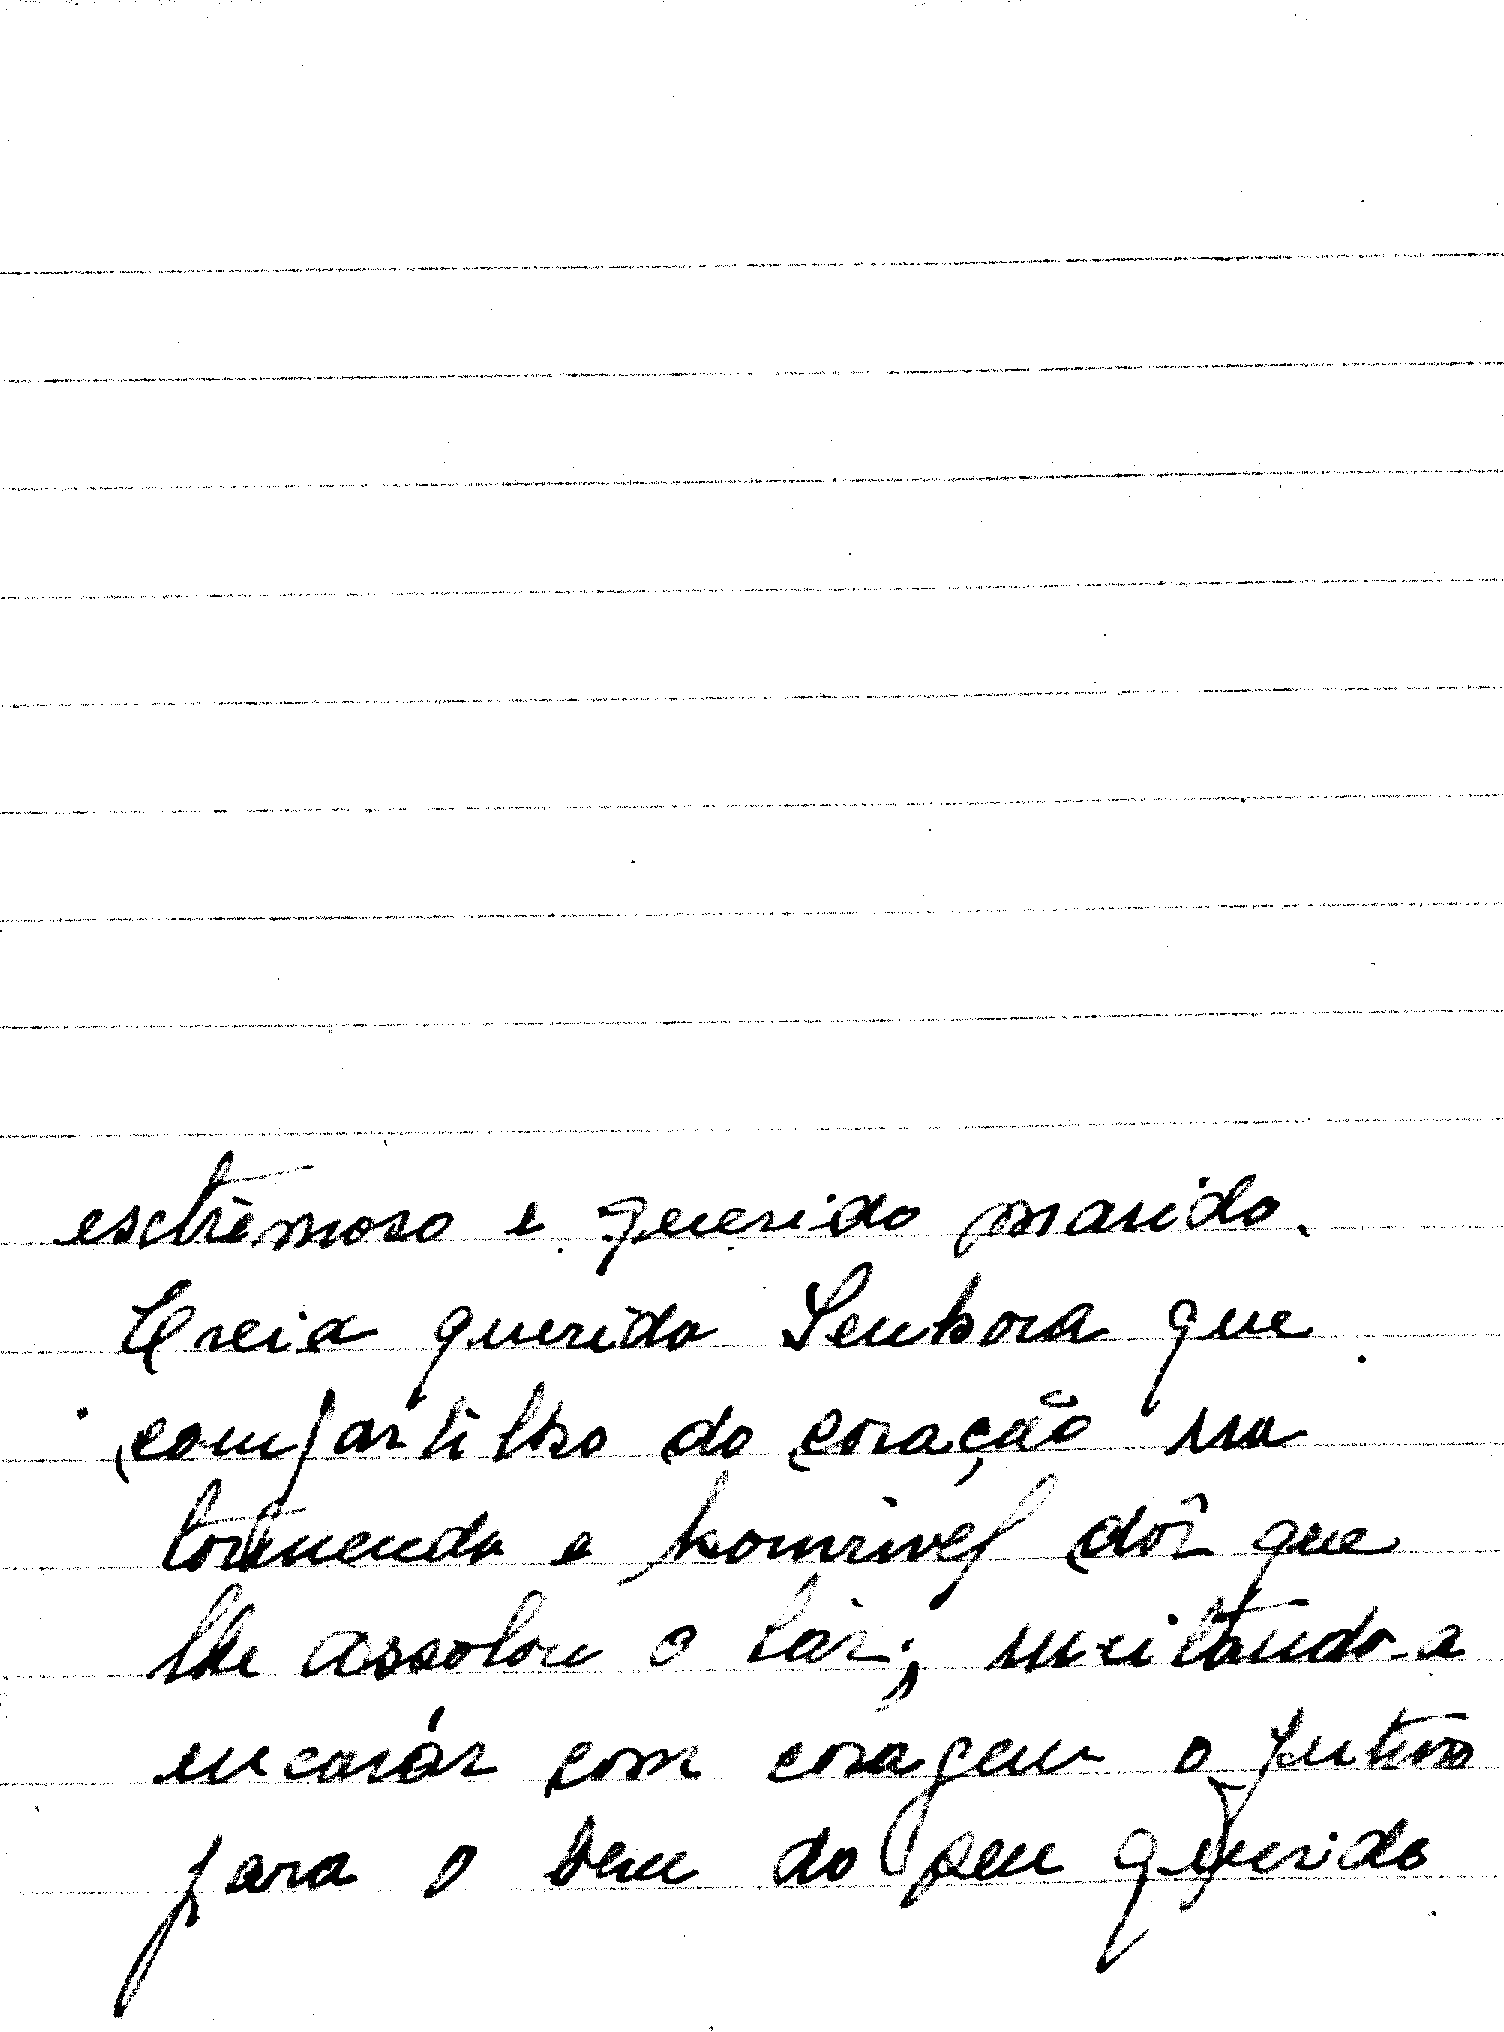 extremoso e querido marido.
Creia querida Senhora que
compartilho do coração na
tormenda e horrivel dôr que
lhe assolou o lár; incitando-a
encarár com coragem o futuro
para o bem do seu querido